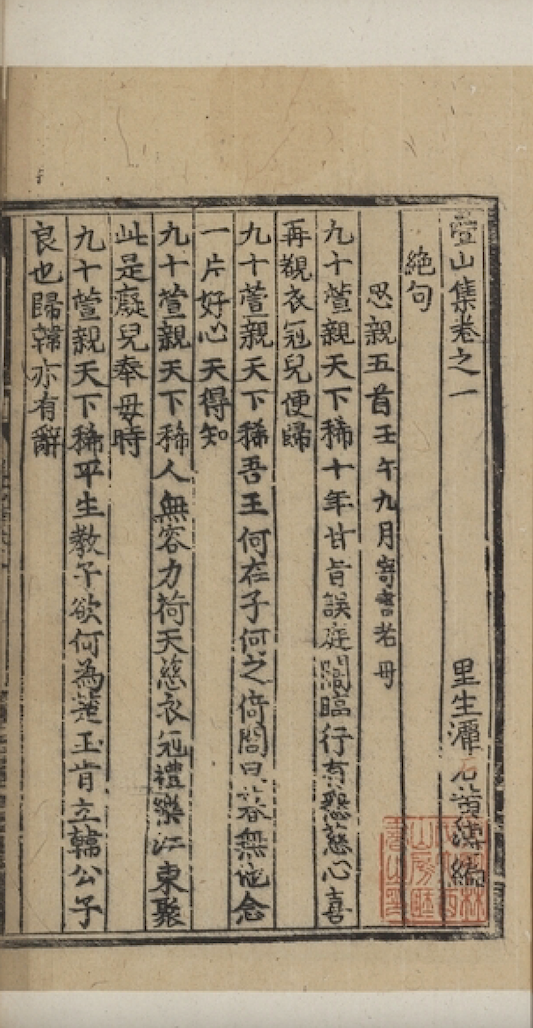 疊山集卷之一
里生潭石黃溥編
絕句
思親五首壬午九月寄書老母
九十萱親天下稀十年甘旨誤庭闈臨行有怨慈心喜
再覩衣冠兒便歸
九十萱親天下稀吾王何在子何之倚閭日暮無他念
一片好心天得知
九十萱親天下稀人無容力荷天慈衣冠禮樂江東聚
此是癡兒奉毋時
九十萱親天下稀平生教子欲何為蓮玉肯立韓公子
良也歸韓亦有辭